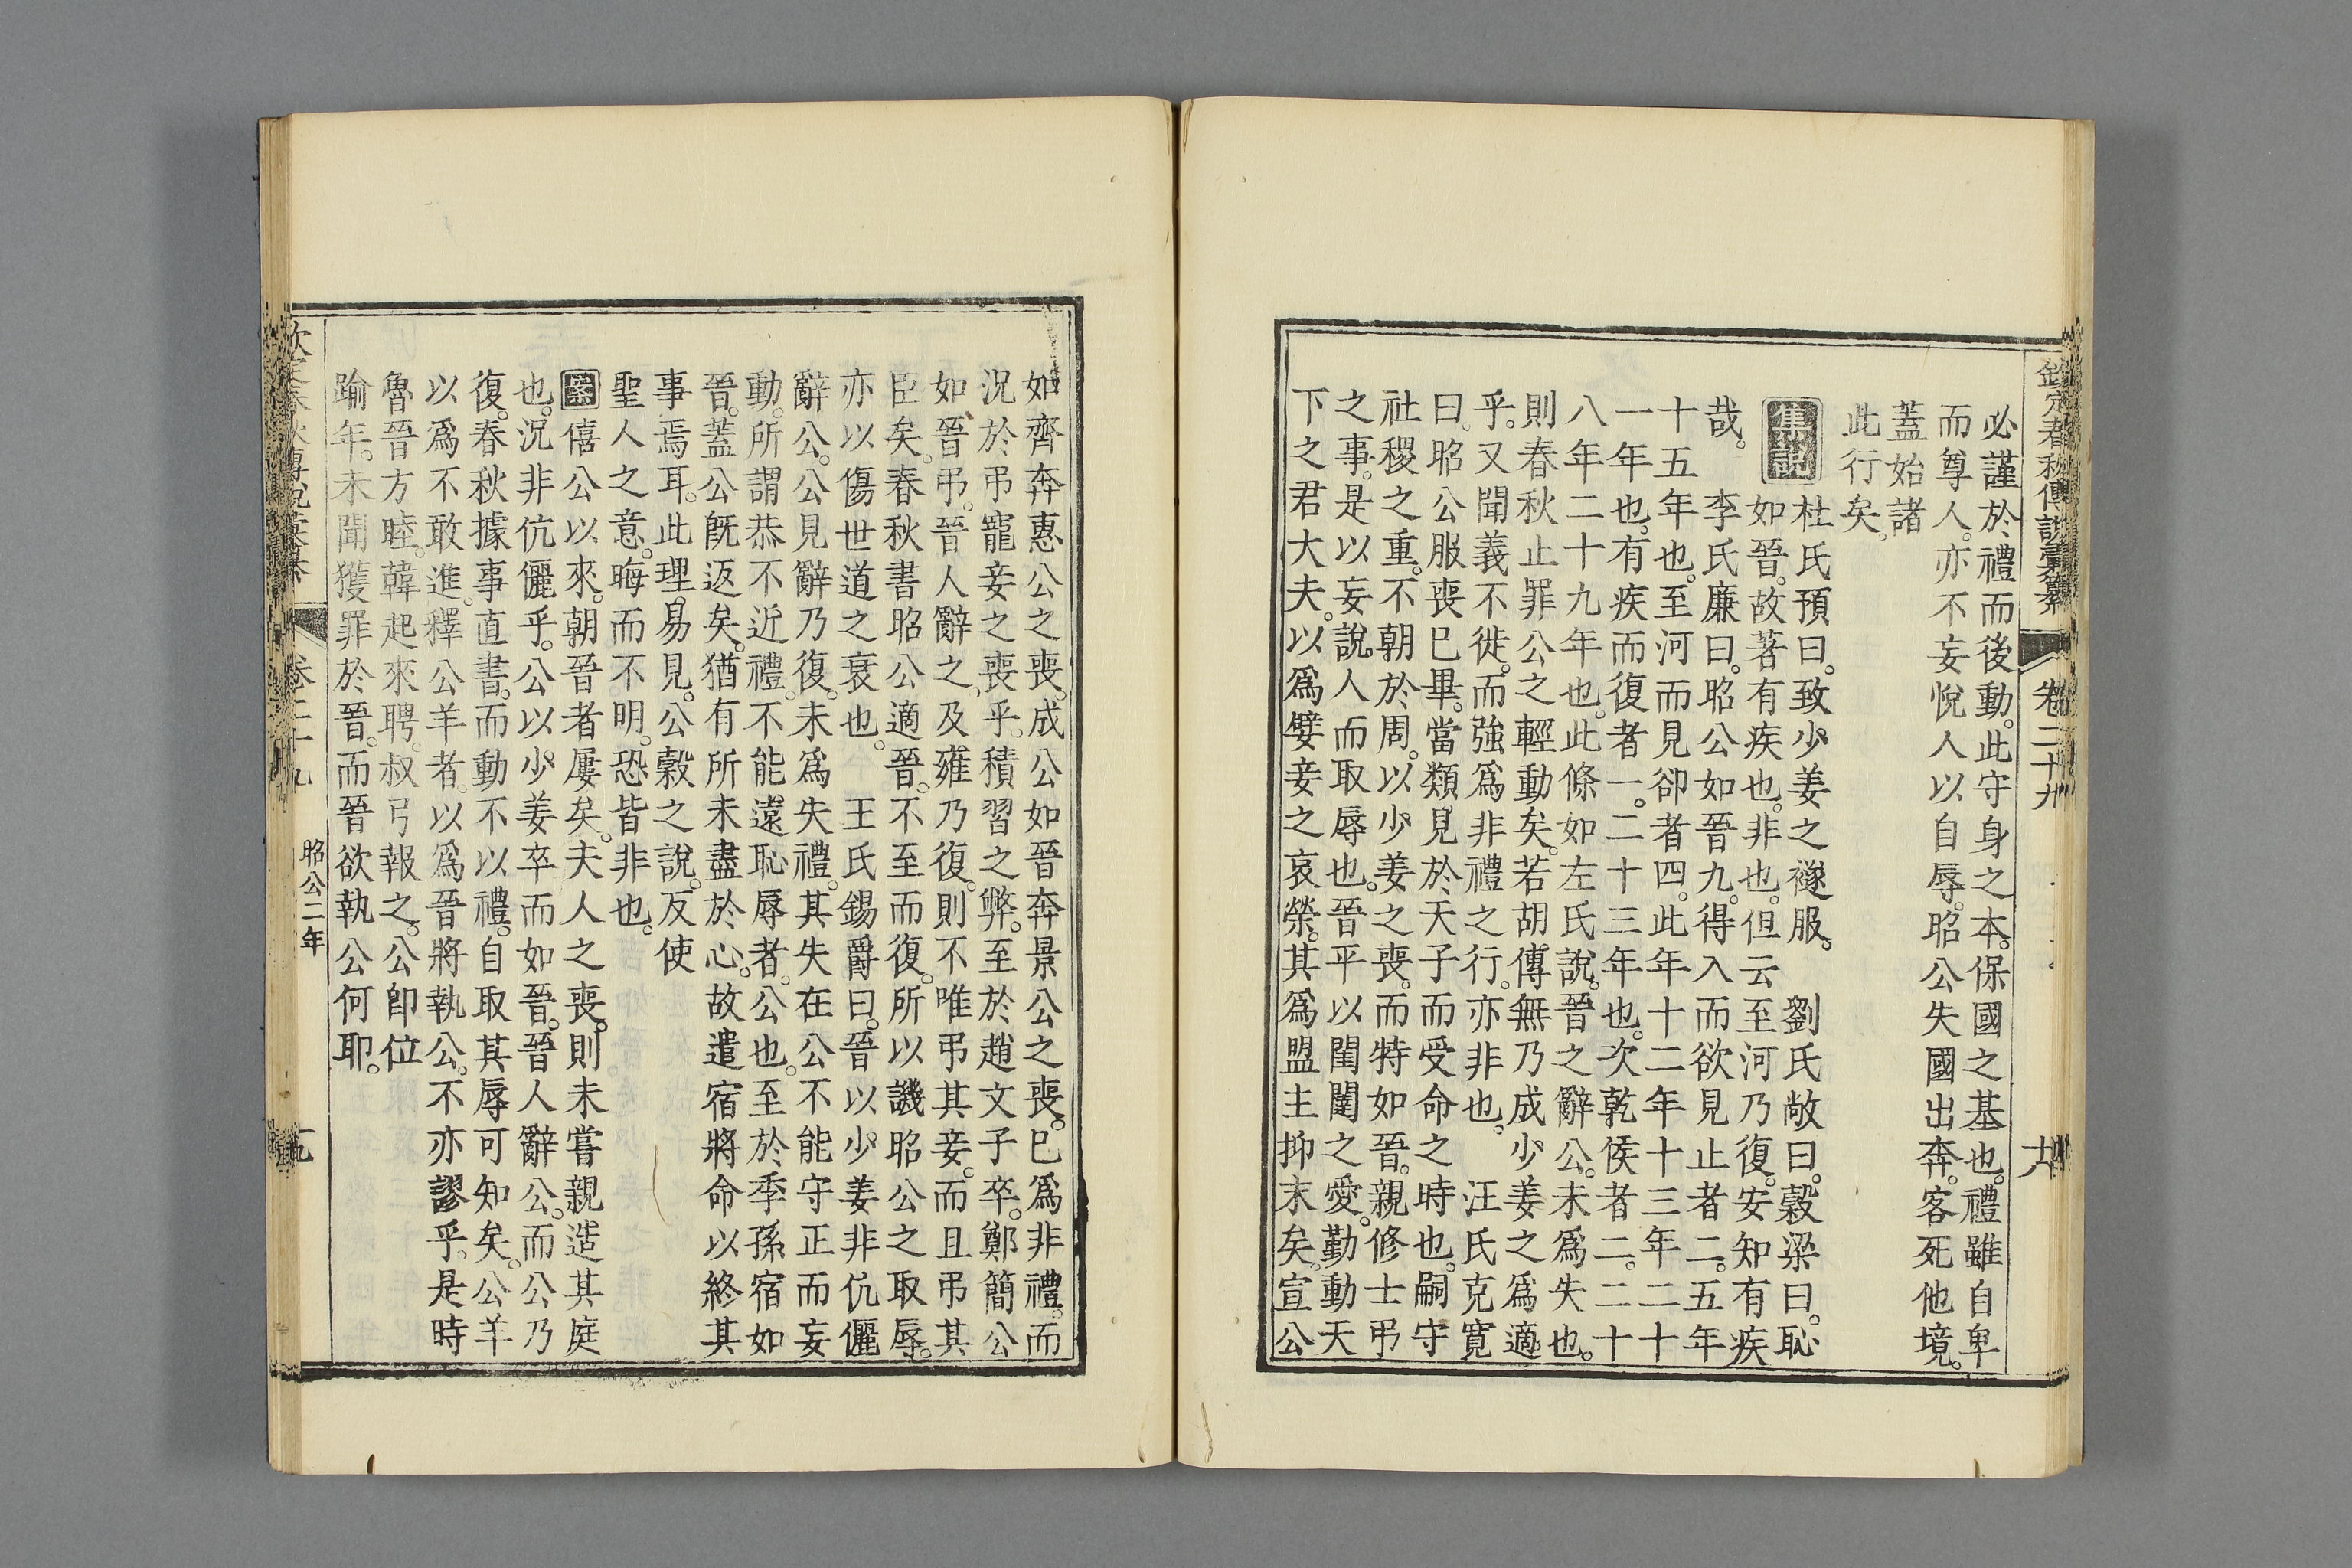 欽定春秋傳說彙纂 卷二十九
必謹於禮而後動。此守身之本。保國之基也。禮雖自卑
而尊人。亦不妄悅人以自辱。昭公失國出奔。客死他境。
蓋始諸
此行矣。
集說 杜氏預曰。致少姜之襚服。 劉氏敞曰。穀梁曰。恥
如晉。故著有疾也。非也。但云至河乃復。安知有疾
哉。 李氏廉曰。昭公如晉九。得入而欲見止者二。五年
十五年也。至河而見卻者四。此年十二年十三年二十
一年也。有疾而復者一。二十三年也。次乾侯者二。二十
八年二十九年也。此條如左氏說。晉之辭公。未爲失也。
則春秋止罪公之輕動矣。若胡傳無乃成少姜之爲適
乎。又聞義不徙。而強爲非禮之行。亦非也。 汪氏克寬
曰。昭公服喪已畢。當類見於天子而受命之時也。嗣守
社稷之重。不朝於周。以少姜之喪。而特如晉。親修士弔
之事。是以妄說人而取辱也。晉平以閨闥之愛。勤動天
下之君大夫。以爲嬖妾之哀榮。其爲盟主抑末矣。宣公
如齊奔惠公之喪。成公如晉奔景公之喪。已爲非禮。而
況於弔寵妾之喪乎。積習之弊。至於趙文子卒。鄭簡公
如晉弔。晉人辭之。及雍乃復。則不唯弔其妾。而且弔其
臣矣。春秋書昭公適晉。不至而復。所以譏昭公之取辱。
亦以傷世道之衰也。 王氏錫爵曰。晉以少姜非伉儷
辭公。公見辭乃復。未爲失禮。其失在公不能守正而妄
動。所謂恭不近禮。不能遠恥辱者。公也。至於季孫宿如
晉。蓋公旣返矣。猶有所未盡於心。故遣宿將命以終其
事焉耳。此理易見。公穀之說。反使
聖人之意。晦而不明。恐皆非也。
案 僖公以來。朝晉者屢矣。夫人之喪。則未嘗親造其庭
也。況非伉儷乎。公以少姜卒而如晉。晉人辭公。而公乃
復。春秋據事直書。而動不以禮。自取其辱可知矣。公羊
以爲不敢進。釋公羊者。以爲晉將執公。不亦謬乎。是時
魯晉方睦。韓起來聘。叔弓報之。公卽位
踰年。未聞獲罪於晉。而晉欲執公何耶。
卷二十九 昭公二年